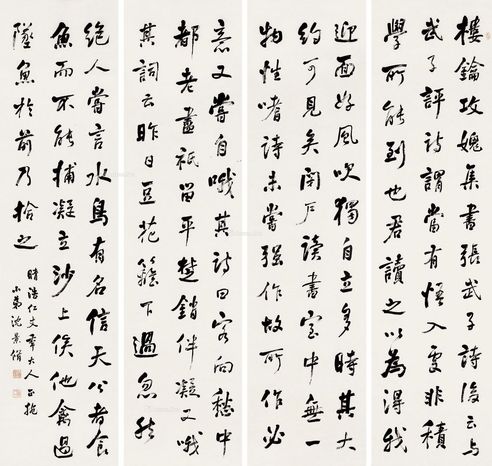 樓鑰攻媿集書張武子詩後云與
武子評詩謂當有悟入處非積
學所能到也君讀之以為得我
意又嘗自哦其詩曰客向愁中
都老盡祇留平楚銷伴凝又哦
其詞云昨日豆花籬下過忽然
迎面好風吹獨自立多時其大
約可見矣閉戶讀書室中無一
物性嗜詩未嘗強作故所作必
絶人嘗言水鳥有名信天公者食
魚而不能捕凝立沙上俟他禽過
墜魚於前乃拾之
仁丈大人正
小弟沈景脩